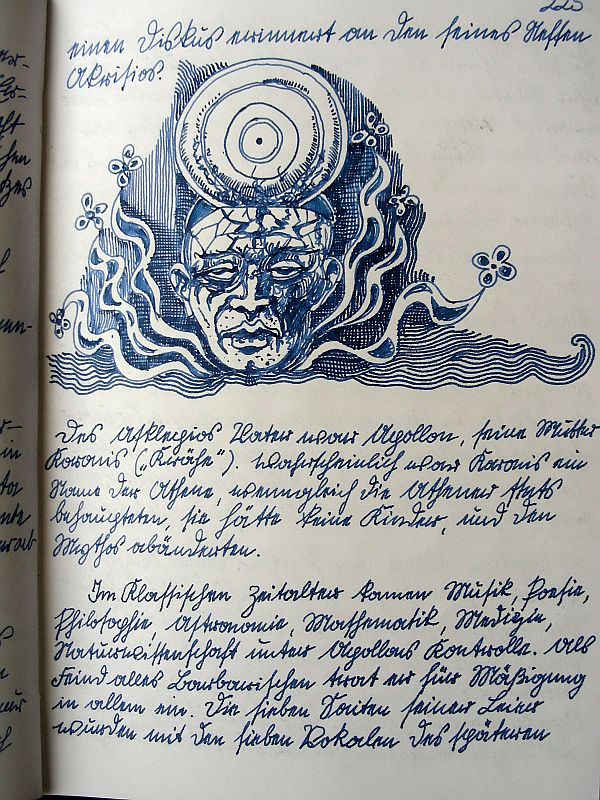 225
einen Diskus erinnert an den seines Neffen
Akrisios.
Des Asklepios Vater war Apollon, seine Mutter
Koronis („Krähe"). Wahrscheinlich war Koronis ein
Name der Athene, wenngleich die Athener stets
behaupteten, sie hätte keine Kinder, und den
Mythos abänderten.
Im Klassischen Zeitalter kamen Musik, Poesie,
Philosophie, Astronomie, Mathematik, Medizin,
Naturwissenschaft unter Apollons Kontrolle. Als
Feind alles Barbarischen trat er für Mäßigung
in allem ein. Die sieben Saiten seiner Leier
wurden mit den sieben Vokalen des späteren